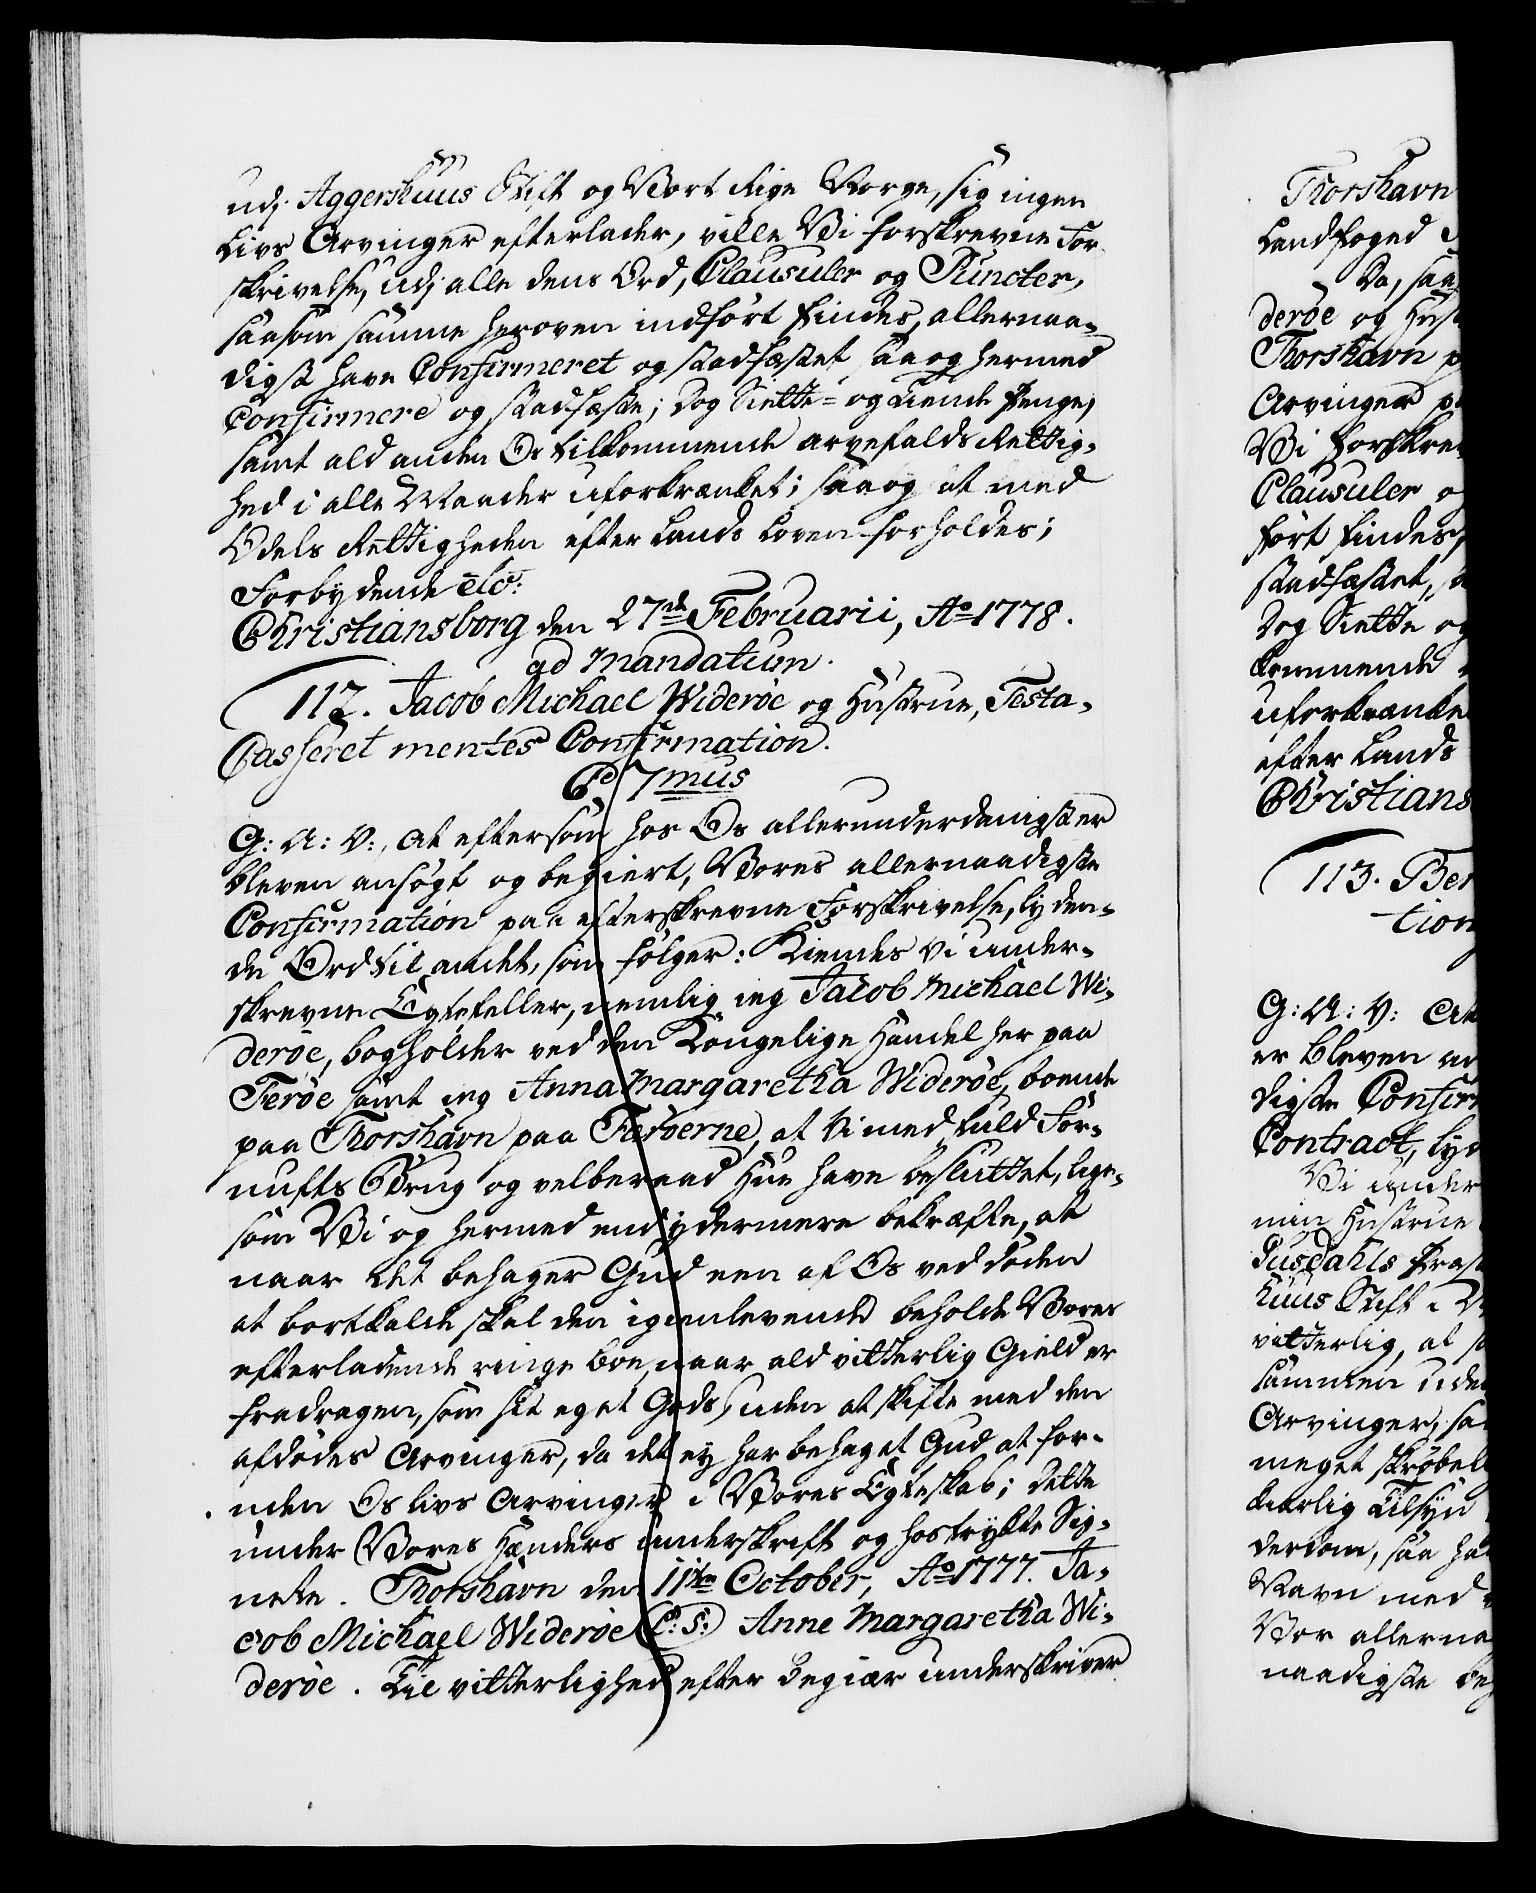 udj Aggershuus Stift og Vort Rige Norge, sig ingen
Livs Arvinger efterlader, ville Vi forskrevne For-
skrivelse, udj alle dens Ord, Clausuler og Puncter,
saasom samme heroven indført findes, allernaa-
digst have Confirmeret og stadfæstet, saa og hermed
Confirmere og stadfæste; Dog Siette- og Tiende Penge,
samt ald anden Os tilkommende arvefalds Rettig-
hed i alle Maader uforkrænket; saa og at med
Odels Rettigheden efter Lands Loven forholdes;
Forbydende etc:
Christiansborg den 27de Februarii, Ao 1778.
ad Mandatum.
112. Jacob Michael Widerøe og Hustrue, Testa-
Casseret mentes Confirmation.
C 7mus
G: A: V:, At eftersom hos Os allerunderdanigst er
bleven ansøgt og begiert, Vores allernaadigste
Confirmation paa efterskrevne Forskrivelse, lyden-
de Ord til andet, som følger: Kiendes Vi under-
skrevne Egtefeller, nemlig jeg Jacob Michael Wi-
derøe, bogholder ved den Kongelige Handel her paa
Ferøe samt jeg Anna Margaretha Widerøe, boende
paa Thorshavn paa Færøerne, at Vi med fuld For-
nufts Brug og velberaad Hue have besluttet, lige-
som Vi og hermed end ydermere bekræfte, at
naar det behager Gud een af Os ved døden
at bortkalde skal den igienlevende beholde Vores
efterladende ringe boe, naar ald vitterlig Gield er
fradragen, som sit eget Gods, uden at skifte med den
afdødes Arvinger, da det ey har behaget Gud at for-
unden Os livs Arvinger i Vores Egteskab; dette
under Vores Hænders underskrift og hostrykte Sig-
nete. Thorshavn den 11ten October, Ao 1777. Ja-
cob Michael Widerøe (L: S:) Anne Margaretha Wi-
derøe. Til vitterlighed efter begiær underskriver
Thorshavn
Landfoged
Da, saa
derøe og Hust
Thorshavn p
Arvinger
Vi forskre
Clausuler o
ført findes,
stadfæstet,
Dog Siette og
kommende
uforkrænke
efter Lands
Christians
113. Ber
tion
G: A: V: At
er bleven an
digste Confir
Contract, lyd
Vi under
min Hustrue
Præst
huus Stift i
vitterlig, at
sammen uden
Arvinger, saa
meget skrøbel
kierlig Tilsyn
derdom, saa ha
Navn med
Vor allerna
naadigste beg